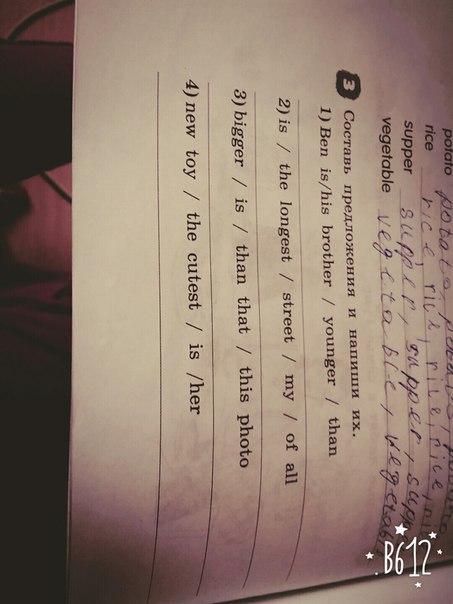 potato potato,
rice rice, rice, rice, rice,
supper supper, supper, sup
vegetable vegetable, vegetabl
3 Составь предложения и напиши их.
1) Ben is/his brother / younger / than
2) is / the longest / street / my / of all
3) bigger / is / than that / this photo
4) new toy / the cutest / is /her
B612